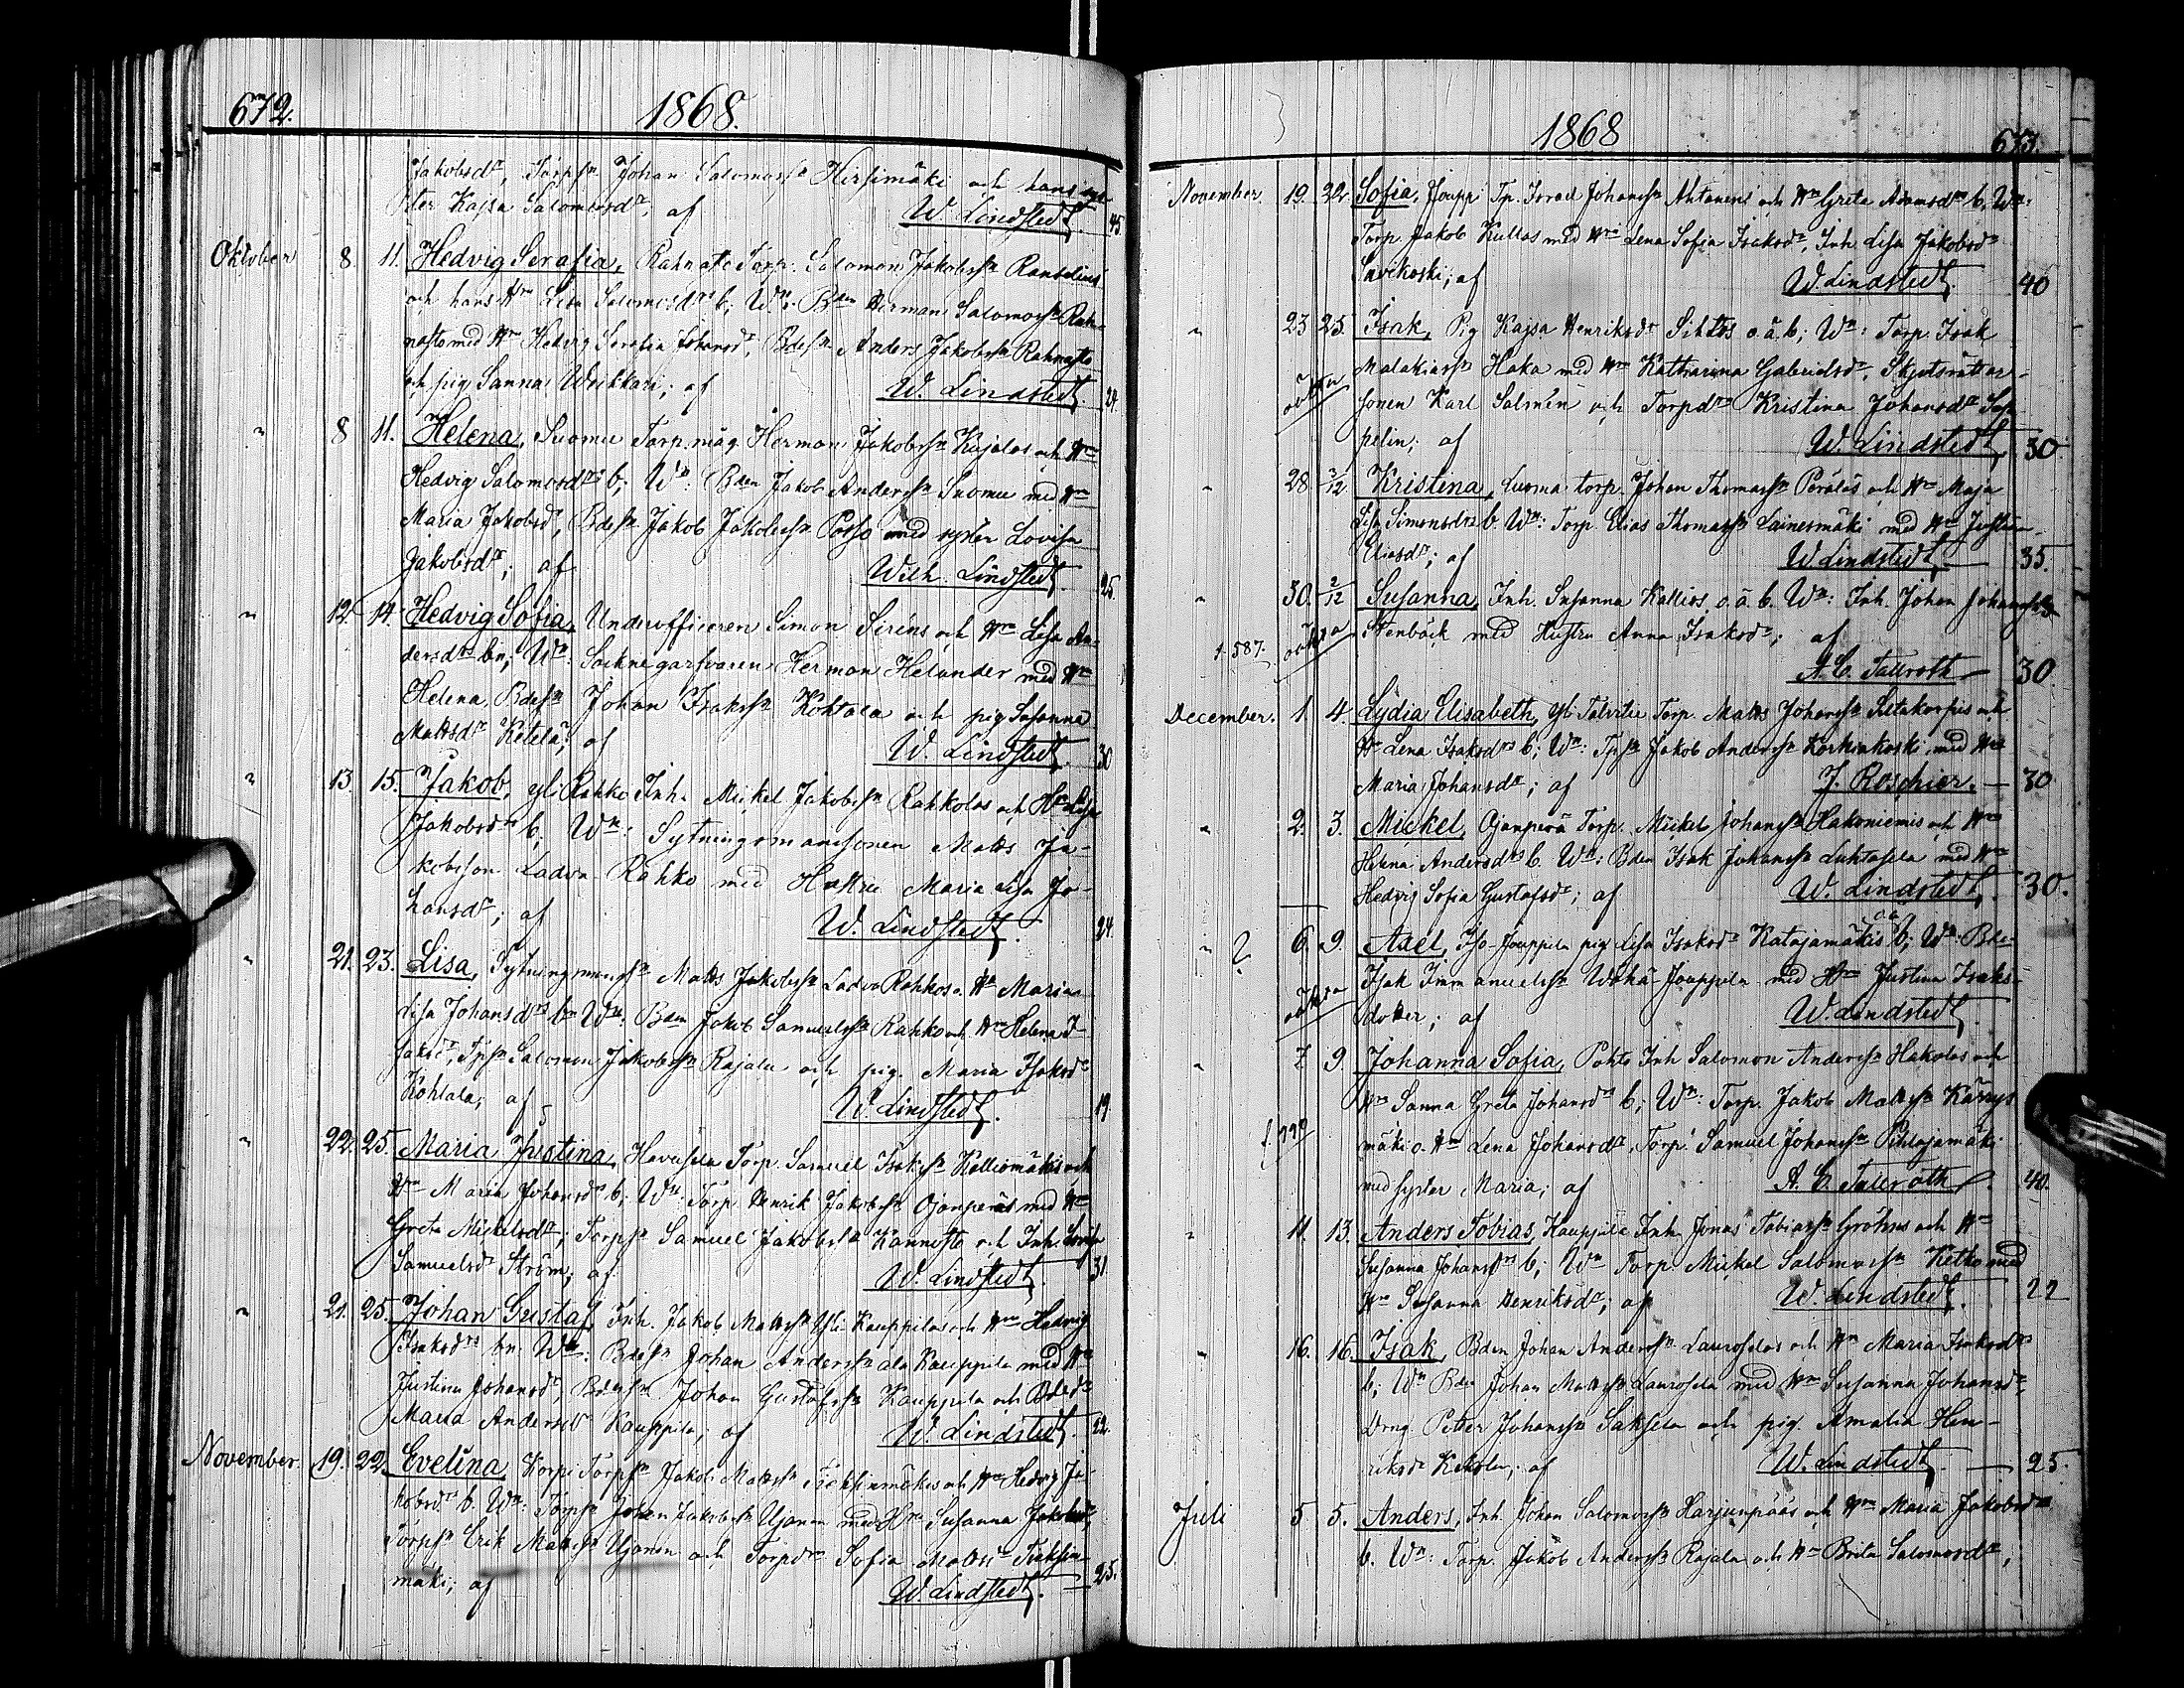 672. 1868.
Jakobsdr, Torpsn Johan Salomonssn Hirsimäki och hans
ster Kajsa Salomonsdr, af W. Lindstedt. 45
Oktober 8 11. Hedvig Serafia, Torp. Salomon Jakobssn
och hans Hu Lisa Salomonsdrs b; Wn: Bden Herman Salomonssn Rah-
nasto med Hu Hedvig Serafia Johansdr, Bdessn Anders Jakobssn Rahnasto
och pig Sanna; af W. Lindstedt. 24.
" 8 11. Helena, Suomu Torp. måg Herman Jakobssn Kujalas och Hu
Hedvig Salomonsdrs b; Wn: Bden Jakob Anderssn Suomu med Hu
Maria Jakobsdr, Bdessn Jakob Jakobssn Posso med syster Lovisa
Jakobsdr; af Wilh. Lindstedt. 25.
" 12. 14. Hedvig Sofia, Underofficeren Simon Siréns och Hu Lisa An-
dersdrs bn; Wn: Socknegarfvaren Herman Helander med Hu
Helena, Bdessn Johan Isakssn Kohtala och pig Susanna
Mattsdr Ketela; af W. Lindstedt. 30
" 13. 15. Jakob, Yli Rahko Inh. Mickel Jakobssn Rahkolas och Hu Lisa
Jakobsdrs b; Wn: Sytningsmanssonen Matts Ja-
kobsson Ladva Rahko med Hustru Maria Lisa Jo-
hansdr; af W. Lindstedt. 24.
" 21. 23. Lisa, Sytningsmanssn Matts Jakobssn Ladva Rahkos o. Hu Maria
Lisa Johansdrs bn Wn: Bden Jakob Samuelssn Rahko och Hu Helena I-
saksdr, Tpsn Salomon Jakobssn Rajala och pig. Maria Isaksdr
Kohtala; af W. Lindstedt. 19.
" 22. 25. Maria Justina, Havusela Torp. Samuel Isakssn Kalliomäkis och
Hu Maria Johansdrs b; Wn: Torp Henrik Jakobssn Ojanperä med Hu
Greta Mickelsdr; Torpsn Samuel Jakobssn Kannosto och Inh. Sofia
Samuelsdr Ström; af W. Lindstedt. 31.
" 21. 25. Johan Gustaf, Inh. Jakob Mattssn Yli Kauppilas och Hu Hedvig
Isaksdrs bn Wn: Bdessn Johan Anderssn ala Kauppila med Hu
Justina Johansdr, Bdessn Johan Gustafssn Kauppila och Bdedr
Maria Andersdr Kauppila; af W. Lindstedt. 22.
November. 19. 22. Evelina, Korpi Torpsn Jakob Mattssn och Hu Hedvig Ja-
kobsdrs b. Wn: Torpsn Johan Jakobssn Ujanen med Hu Susanna Jakobsdr,
Torpsn Erik Mattssn Ujanen och Torpdr Sofia Mattsdr
mäki; af W. Lindstedt. 25.
1868 673.
November. 19. 22. Sofia, Joupp Tp. Israel Johanssn Ahtonens och Hu Greta Adamsdrs b. Wn:
Torp. Jakob Kullas med Hu Lena Sofia Isaksdr, Inh. Lisa Jakobsdr
Savikoski; af W. Lindstedt. 40
" 23 25. Isak, Pig Kajsa Henriksdr o.ä. b; Wn: Torp. Isak
oäkta Malakiassn Haka med Hu Katharina Gabrielsdr, Skjutsrättar-
sonen Karl Salmén och Torpdr Kristina Johansdr Sap-
pelin; af W. Lindstedt 30.
" 28. 3/12 Kristina, Luoma torp. Johan Thomassn Peräläs och Hu Maja
Lisa Simonsdrs b. Wn: Torp. Elias Thomassn Lainesmäki med Hu Justina
Eliasdr; af W. Lindstedt. 35.
" 30. 2/12 Susanna, Inh. Susanna Kallios o.ä. b. Wn: Inh. Johan Johanssn
f. 587. oäkta Stenbäck med Hustru Anna Isaksdr; af
A. C. Tallroth 30
December. 1. 4. Lydia Elisabeth, Yli Talvitie Torp. Matts Johanssn Sietakorpis och
Hu Lena Isaksdrs b; Wn: Tpsn Jakob Anderssn Korkiakoski med Hu
Maria Johansdr; af J. Roschier. 30
" 2. 3. Mickel, Ojanperä Torp. Mickel Johanssn Hakoniemis och Hu
Helena Andersdrs b. Wn: Bden Isak Johanssn Luhtasela med Hu
Hedvig Sofia Gustafsdr; af W. Lindstedt. 30.
" 2 6. 9. Axel, Iso-Jouppila pig Lisa Isaksdr Katajamäkis o.ä. b; Wn: Bde-
oäkta Isak Immanuelssn Wähä-Jouppila med Hu Justina Isaks-
dotter; af W. Lindstedt
" 7 9. Johanna Sofia, Pohto Inh Salomon Anderssn Hakolas och
Hu Sanna Greta Johansdrs b; Wn: Torp. Jakob Mattssn Kärrys
mäki o. Hu Lena Johansdr, Torp. Samuel Johanssn Pihlajamäki
med syster Maria; af A. C. Tallroth. 40.
" 11. 13. Anders Tobias, Kauppila Inh. Jonas Tobiassn Gröhns och Hu
Susanna Johansdrs b; Wn Torp Mickel Salomonssn Ketko med
Hu Susanna Henriksdr; af W. Lindstedt. 22
" 16. 16. Isak, Bden Johan Anderssn Lauroselas och Hu Maria Isaksdrs
b; Wn Bden Johan Mattssn Laurosela med Hu Susanna Johansdr,
Drng Petter Johanssn Saksela och pig. Amalia Hen-
riksdr Ketola; af W. Lindstedt. 25.
Juli 5 5. Anders, Inh. Johan Salomonssn Harjunpääs och Hu Maria Jakobsdrs
b. Wn: Torp. Jakob Anderssn Rajala och Hu Brita Salomonsdr,